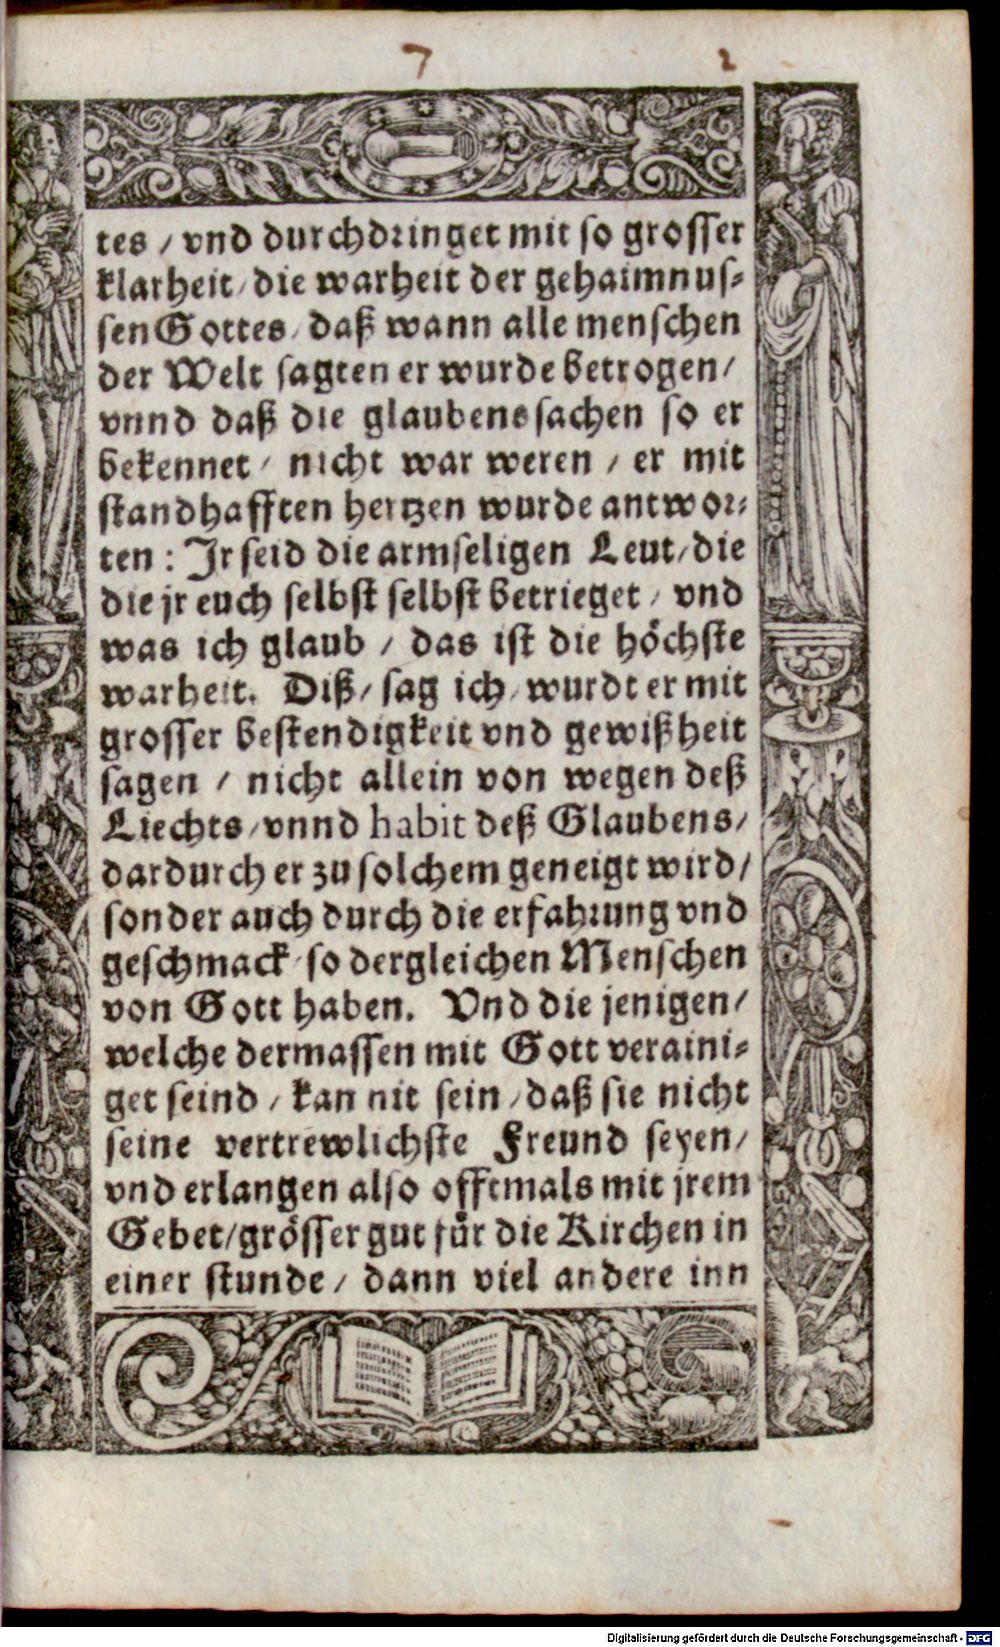 7 2
tes / vnd durchdringet mit so grosser
klarheit / die warheit der gehaimnus⸗
sen Gottes / daß wann alle menschen
der Welt sagten er wurde betrogen /
vnnd daß die glaubens sachen so er
bekennet / nicht war weren / er mit
standhafften hertzen wurde antwor⸗
ten : Jr seid die armseligen Leut / die
die jr euch selbst selbst betrieget / vnd
was ich glaub / das ist die höchste
warheit. Diß / sag ich / wurdt er mit
grosser bestendigkeit vnd gewißheit
sagen / nicht allein von wegen deß
Liechts / vnnd habit deß Glaubens /
dardurch er zu solchem geneigt wird /
sonder auch durch die erfahrung vnd
geschmack / so dergleichen Menschen
von Gott haben. Vnd die jenigen /
welche dermassen mit Gott veraini⸗
get seind / kan nit sein / daß sie nicht
seine vertrewlichste Freund seyen /
vnd erlangen also offtmals mit jrem
Gebet / grösser gut für die Kirchen in
einer stunde / dann viel andere inn
Digitalisierung gefördert durch die Deutsche Forschungsgemeinschaft - DFG